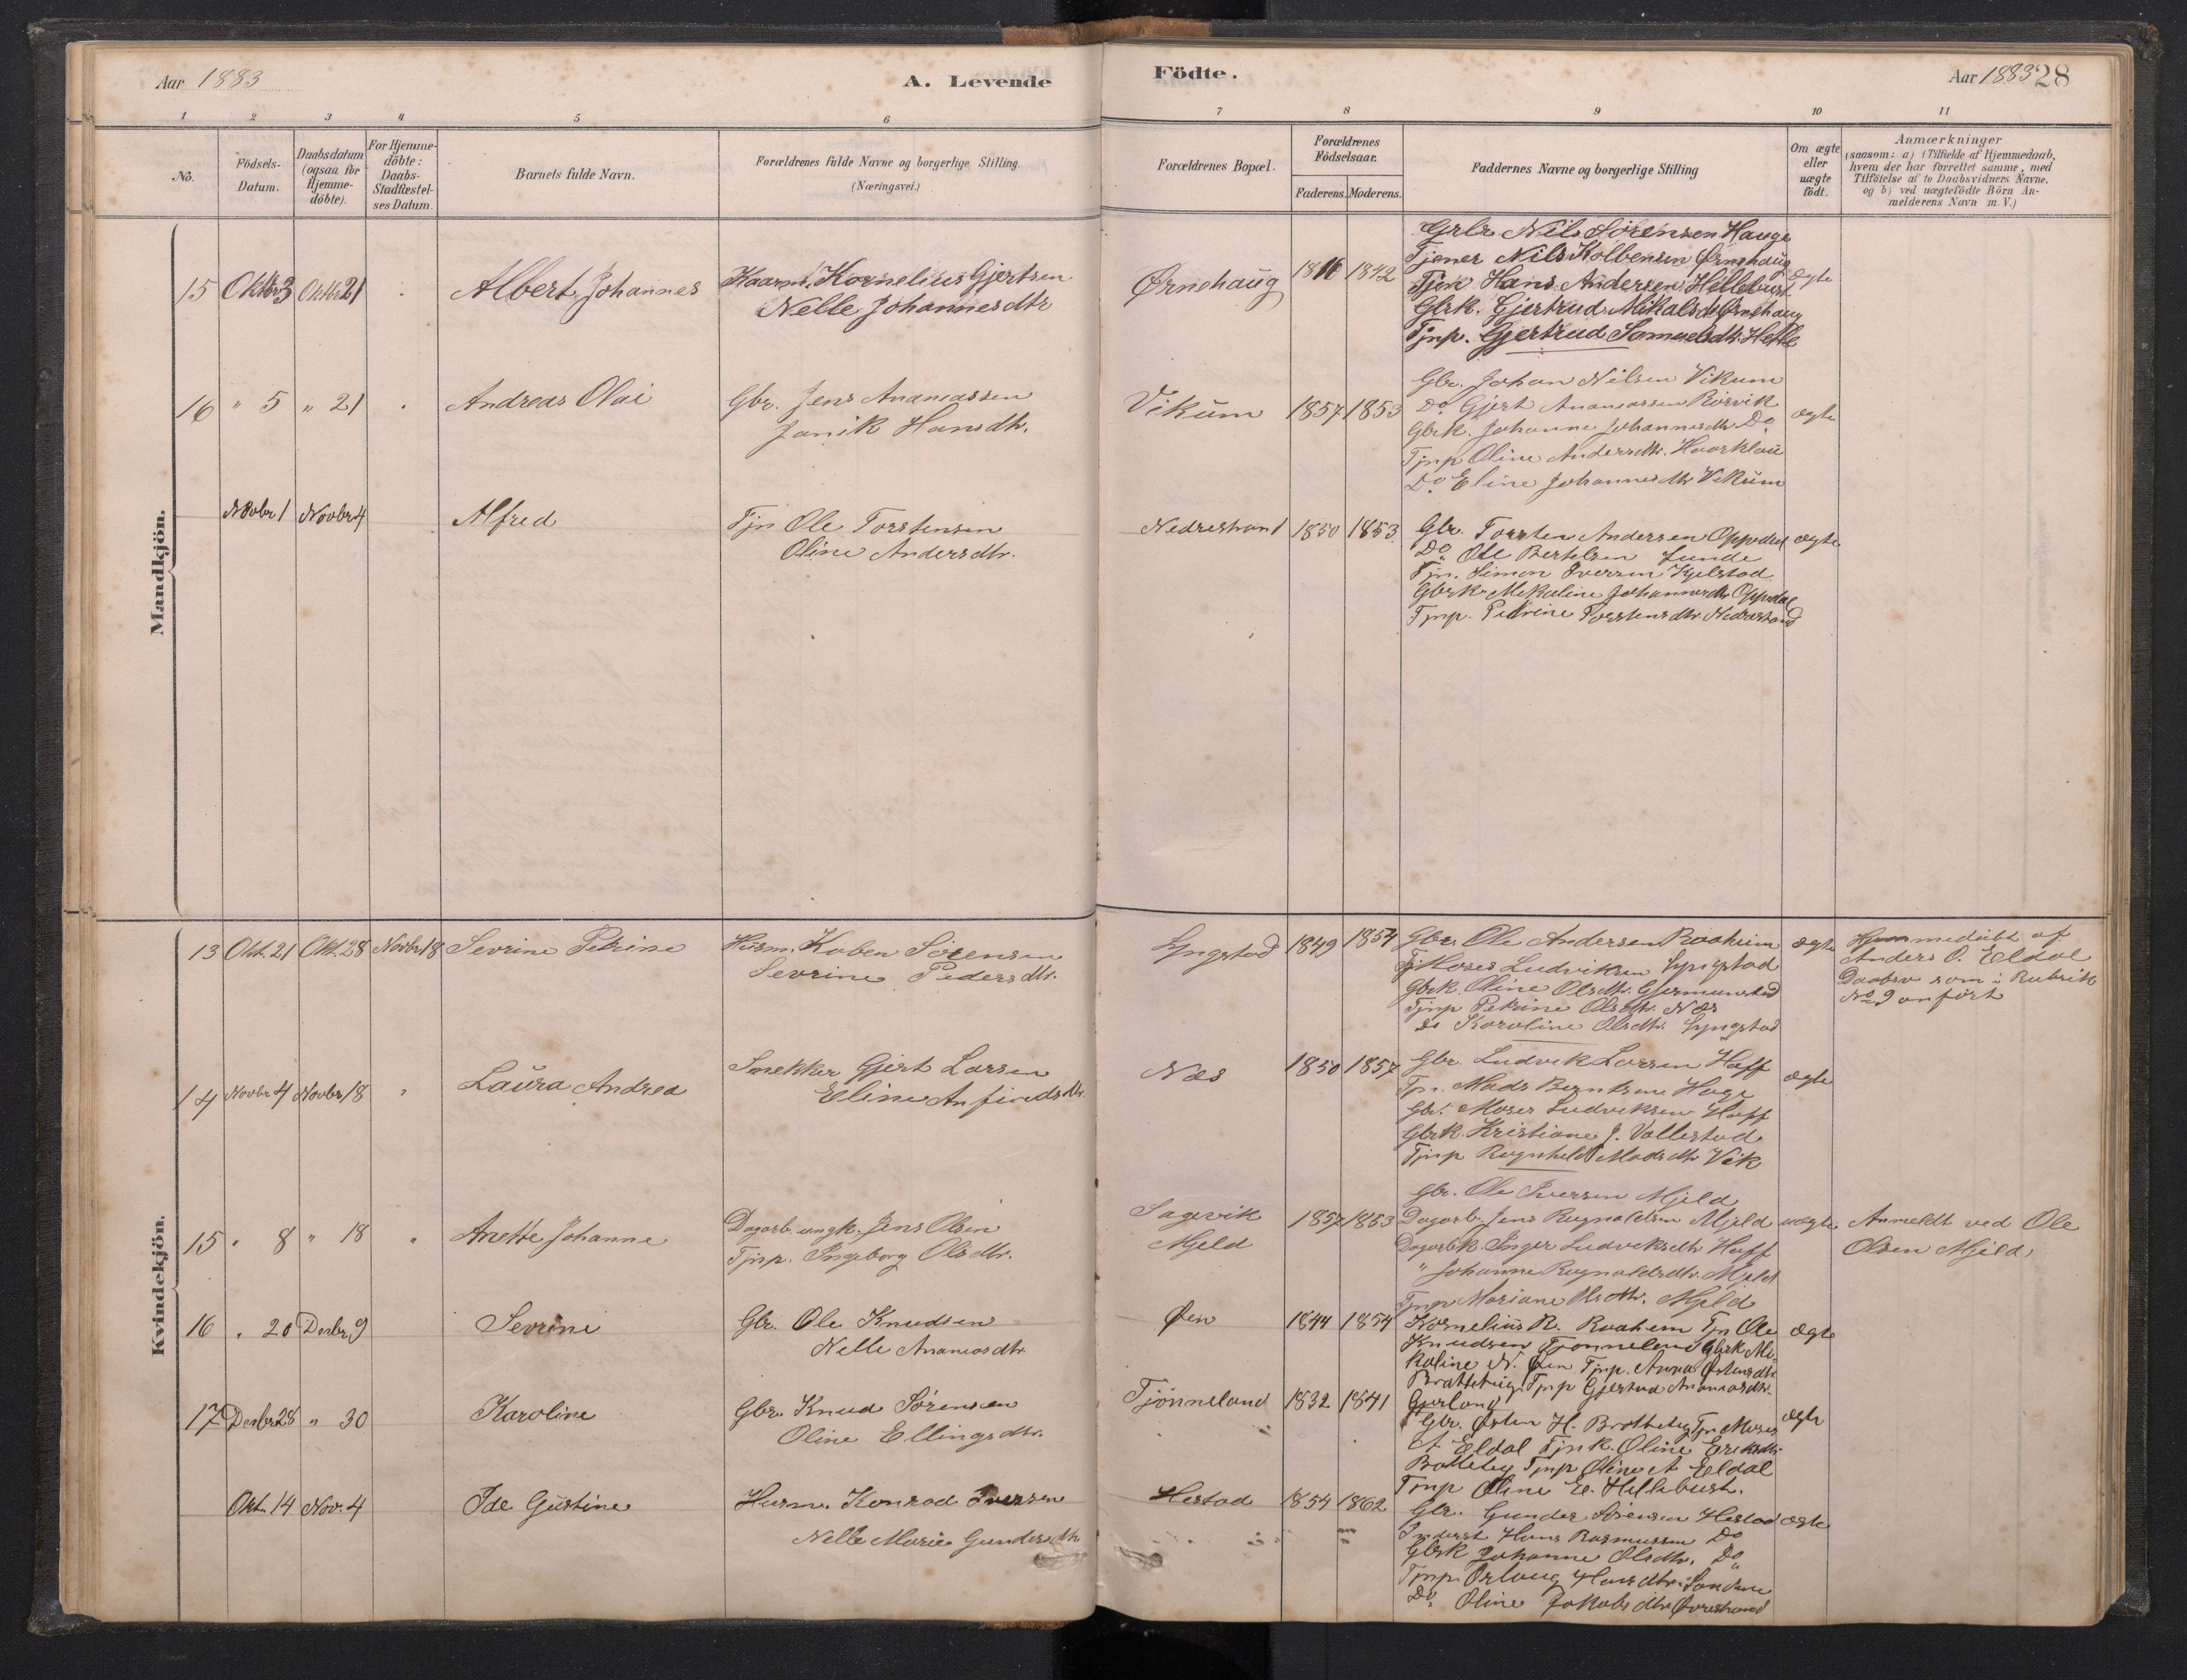 Aar 1883
A. Levende
Födte.
Aar 1883
28
1 2 3 4 5 6 7 8 9 10 11
No.
Födsels-
Datum.
Daabsdatum
(ogsaa for
Hjemme-
döbte).
For Hjemme-
döbte:
Daabs-
Stadfæstel-
ses Datum.
Barnets fulde Navn.
Forældrenes fulde Navne og borgerlige Stilling.
(Næringsvei.)
Forældrenes Bopæl.
Forældrenes
Födselsaar.
Faderens. Moderens.
Faddernes Navne og borgerlige Stilling
Om ægte
eller
uægte
födt.
Anmærkninger
(saasom: a) i Tilfælde af Hjemmedaab,
hvem der har forrettet samme, med
Tilföielse af to Daabsvidners Navne.
og b) ved uægtefödte Börn An-
melderens Navn m. V.)
Mandkjön.
15 Oktbr 3 Oktbr 21 Albert Johannes
Kaarm. Kornelius Gjertsen
Nelle Johannesdtr
Ørnehaug 1816 1842
Grbr Nils Sørensen Hauge
Tjener Nils Kolbensen Ørnehaug
Tjen Hans Andersen Hillebust
Gbrk. Gjertrud Mikalsdtr Ørnehaug
Tjnp. Gjertrud Samuelsdtr. Hatle
ægte
16 " 5 " 21 Andreas Olai
Gbr. Jens Ananiassen
Janik Hansdtr.
Vikum 1857 1853
Gbr. Johan Nilsen Vikum
Do Gjert Ananiassen Rörvik
Gbrk. Johanne Johannesdtr Do
Tjnp Oline Andersdtr. Haarklau
Do Eline Johannesdtr Vikum
ægte
Novbr 1 Novbr 4 Alfred
Tjn Ole Torstensen
Oline Andersdtr.
Nedrestrand 1850 1853
Gbr. Torsten Andersen Oppedal
Do Ole Bertelsen Lunde
Tjn. Simon Iversen Kjelstad
Gbrk Mikaline Johannesdtr Oppedal
Tjnp. Petrine Torstensdtr. Nedrestrand
ægte
Kvindekjön.
13 Okt. 21 Okt. 28 Novbr 18 Sevrine Petrine
Husm. Koben Sörensen
Sevrine Pedersdtr.
Lyngstad 1849 1854
Gbr. Ole Andersen Raaheim
Tj Moses Ludviksen Lyngstad
Gbrk. Oline Olsdtr. Gjermunstad
Tjnp Petrine Olsdtr. Næs
do Karoline Olsdtr. Lyngstad
ægte
Hjemmedöbt af
Anders O. Eldal
Daabsv som i Rubrik
No 9 anfört
14 Novbr 4 Novbr 18 " Laura Andrea
Snekker Gjert Larsen
Eline Anfindsdtr.
Næs 1850 1857
Gbr. Ludvik Larsen Haff
Tjn. Mads Berntsen Hage
Gbr. Moses Ludviksen Haff
Gbrk Kristiane J. Vallestad
Tjnp Ragnhild Madsdtr Vik
ægte
15 " 8 " 18 " Anette Johanne
Dagarb. ungk. Jens Olsen
Tjnp. Ingeborg Olsdtr.
Sagevik
Mjeld
1857 1853
Gbr. Ole Iversen Mjeld
Dagarb. Jens Ragnaldsen Mjeld
Dagarbk. Inger Ludviksdtr Haff
" Johanne Ragnaldsdtr. Mjeld
Tjnp Mariane Olsdtr. Mjeld
uægte
Anmeldt ved Ole
Olsen Mjeld.
16 " 20 Desbr. 9 Sevrine
Gbr. Ole Knudsen
Nelle Ananiasdtr
Øen 1844 1854
Kornelius R. Raaheim Tjn Ole
Knudsen Tjønneland Gbrk Mi-
kaline N. Øen Tjnp. Anna Østensdtr
Brattebug Tjnp Gjertrud Ananiasdtr.
Gjerland
ægte
17 Desbr 28 " 30 Karoline
Gbr. Knud Sørensen
Oline Ellingsdtr.
Tjønneland 1832 1841
Gbr. Østen H. Brattebug Tjn Moses
A Eldal Tjnk. Oline Eriksdtr
Brattebug Tjnp Oline A Eldal
Tjnp Oline E. Hillebust.
ægte
Okt. 14 Nov. 4 Ide Gustine
Husm. Konrad Iversen
Nelle Marie Gundersdtr
Hestad 1854 1862
Gbr. Gunder Sørensen Hestad
Inderst Hans Rasmussen Do
Gbrk Johanne Olsdtr. Do
Tjnp. Ørlaug Hansdtr. Sandene
Do. Oline Jakobsdtr Øvrestrand
ægte